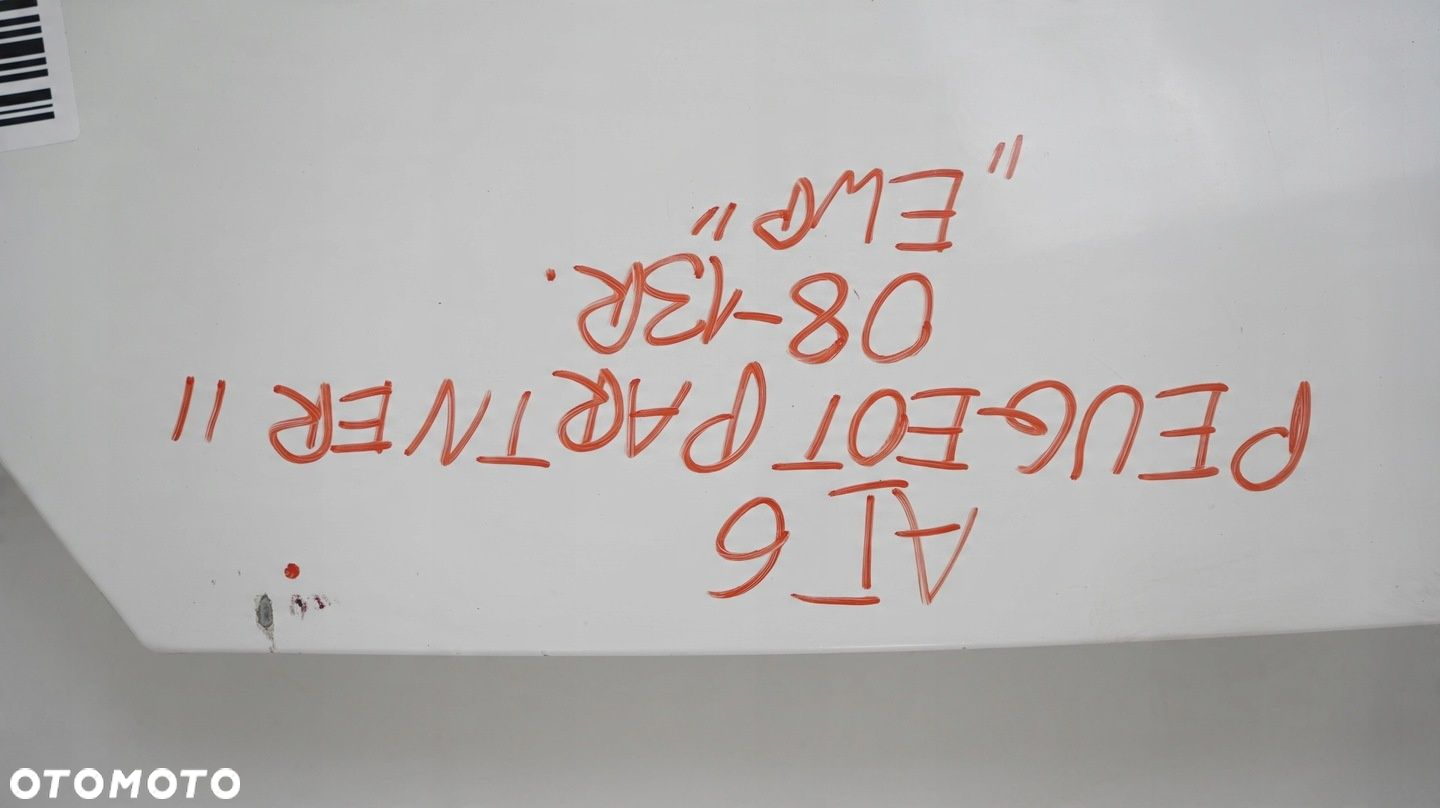 AI6
PEUGEOT PARTNER "
08-13R.
"EWP"
OTOMOTO